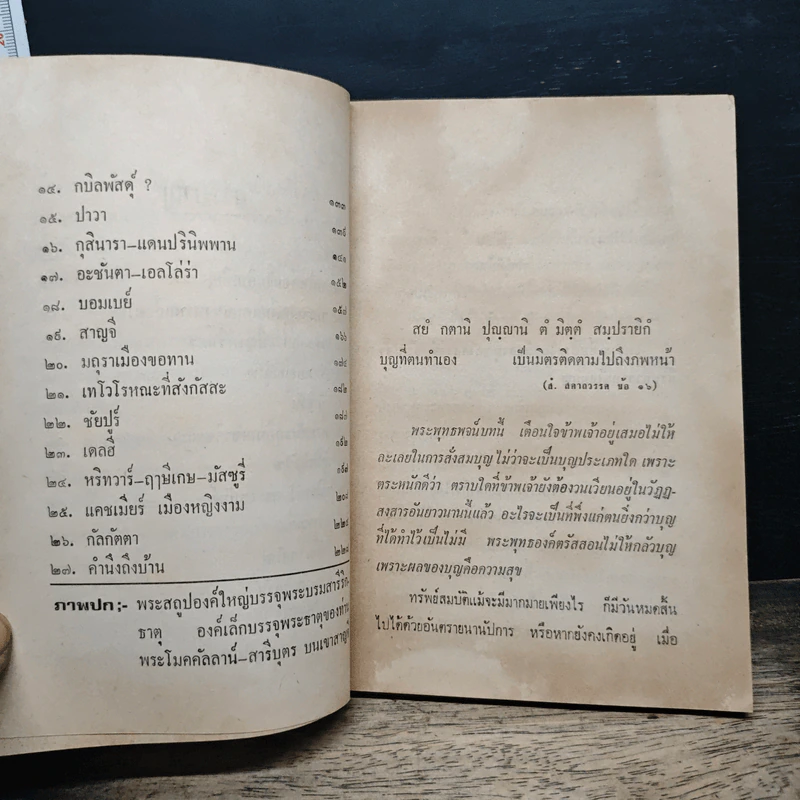 ๑๔. กบิลพัสดุ์ ? ๑๓๓
๑๕. ปาวา ๑๓๕
๑๖. กุสินารา–แดนปรินิพพาน ๑๔๑
๑๗. อะชันตา–เอลโล่ร่า ๑๕๒
๑๘. บอมเบย์ ๑๕๗
๑๙. สาญจี ๑๖๖
๒๐. มถุราเมืองขอทาน ๑๗๔
๒๑. เทโวโรหณะที่สังกัสสะ ๑๘๒
๒๒. ชัยปูร์ ๑๘๗
๒๓. เดลฮี ๑๙๒
๒๔. หริทวาร์–ฤๅษีเกษ–มัสซูรี่
๒๕. แคชเมียร์ เมืองหญิงงาม ๒๐๘
๒๖. กัลกัตตา
๒๗. คำนึงถึงบ้าน
ภาพปก ;- พระสถูปองค์ใหญ่บรรจุพระบรมสารีริก-
ธาตุ องค์เล็กบรรจุพระธาตุของท่าน
พระโมคคัลลาน์–สารีบุตร บนเขาสาญจี
สยํ กตานิ ปุญฺญานิ ตํ มิตฺตํ สมฺปรายิกํ
บุญที่ตนทำเอง เป็นมิตรติดตามไปถึงภพหน้า
(สํ. สคาถวรรค ข้อ ๑๖)
พระพุทธพจน์บทนี้ เตือนใจข้าพเจ้าอยู่เสมอไม่ให้
ละเลยในการสั่งสมบุญ ไม่ว่าจะเป็นบุญประเภทใด เพราะ
ตระหนักดีว่า ตราบใดที่ข้าพเจ้ายังต้องวนเวียนอยู่ในวัฏฏ-
สงสารอันยาวนานนี้แล้ว อะไรจะเป็นที่พึ่งแก่ตนยิ่งกว่าบุญ
ที่ได้ทำไว้เป็นไม่มี พระพุทธองค์ตรัสสอนไม่ให้กลัวบุญ
เพราะผลของบุญคือความสุข
ทรัพย์สมบัติแม้จะมีมากมายเพียงไร ก็มีวันหมดสิ้น
ไปได้ด้วยอันตรายนานัปการ หรือหากยังคงเกิดอยู่ เมื่อ